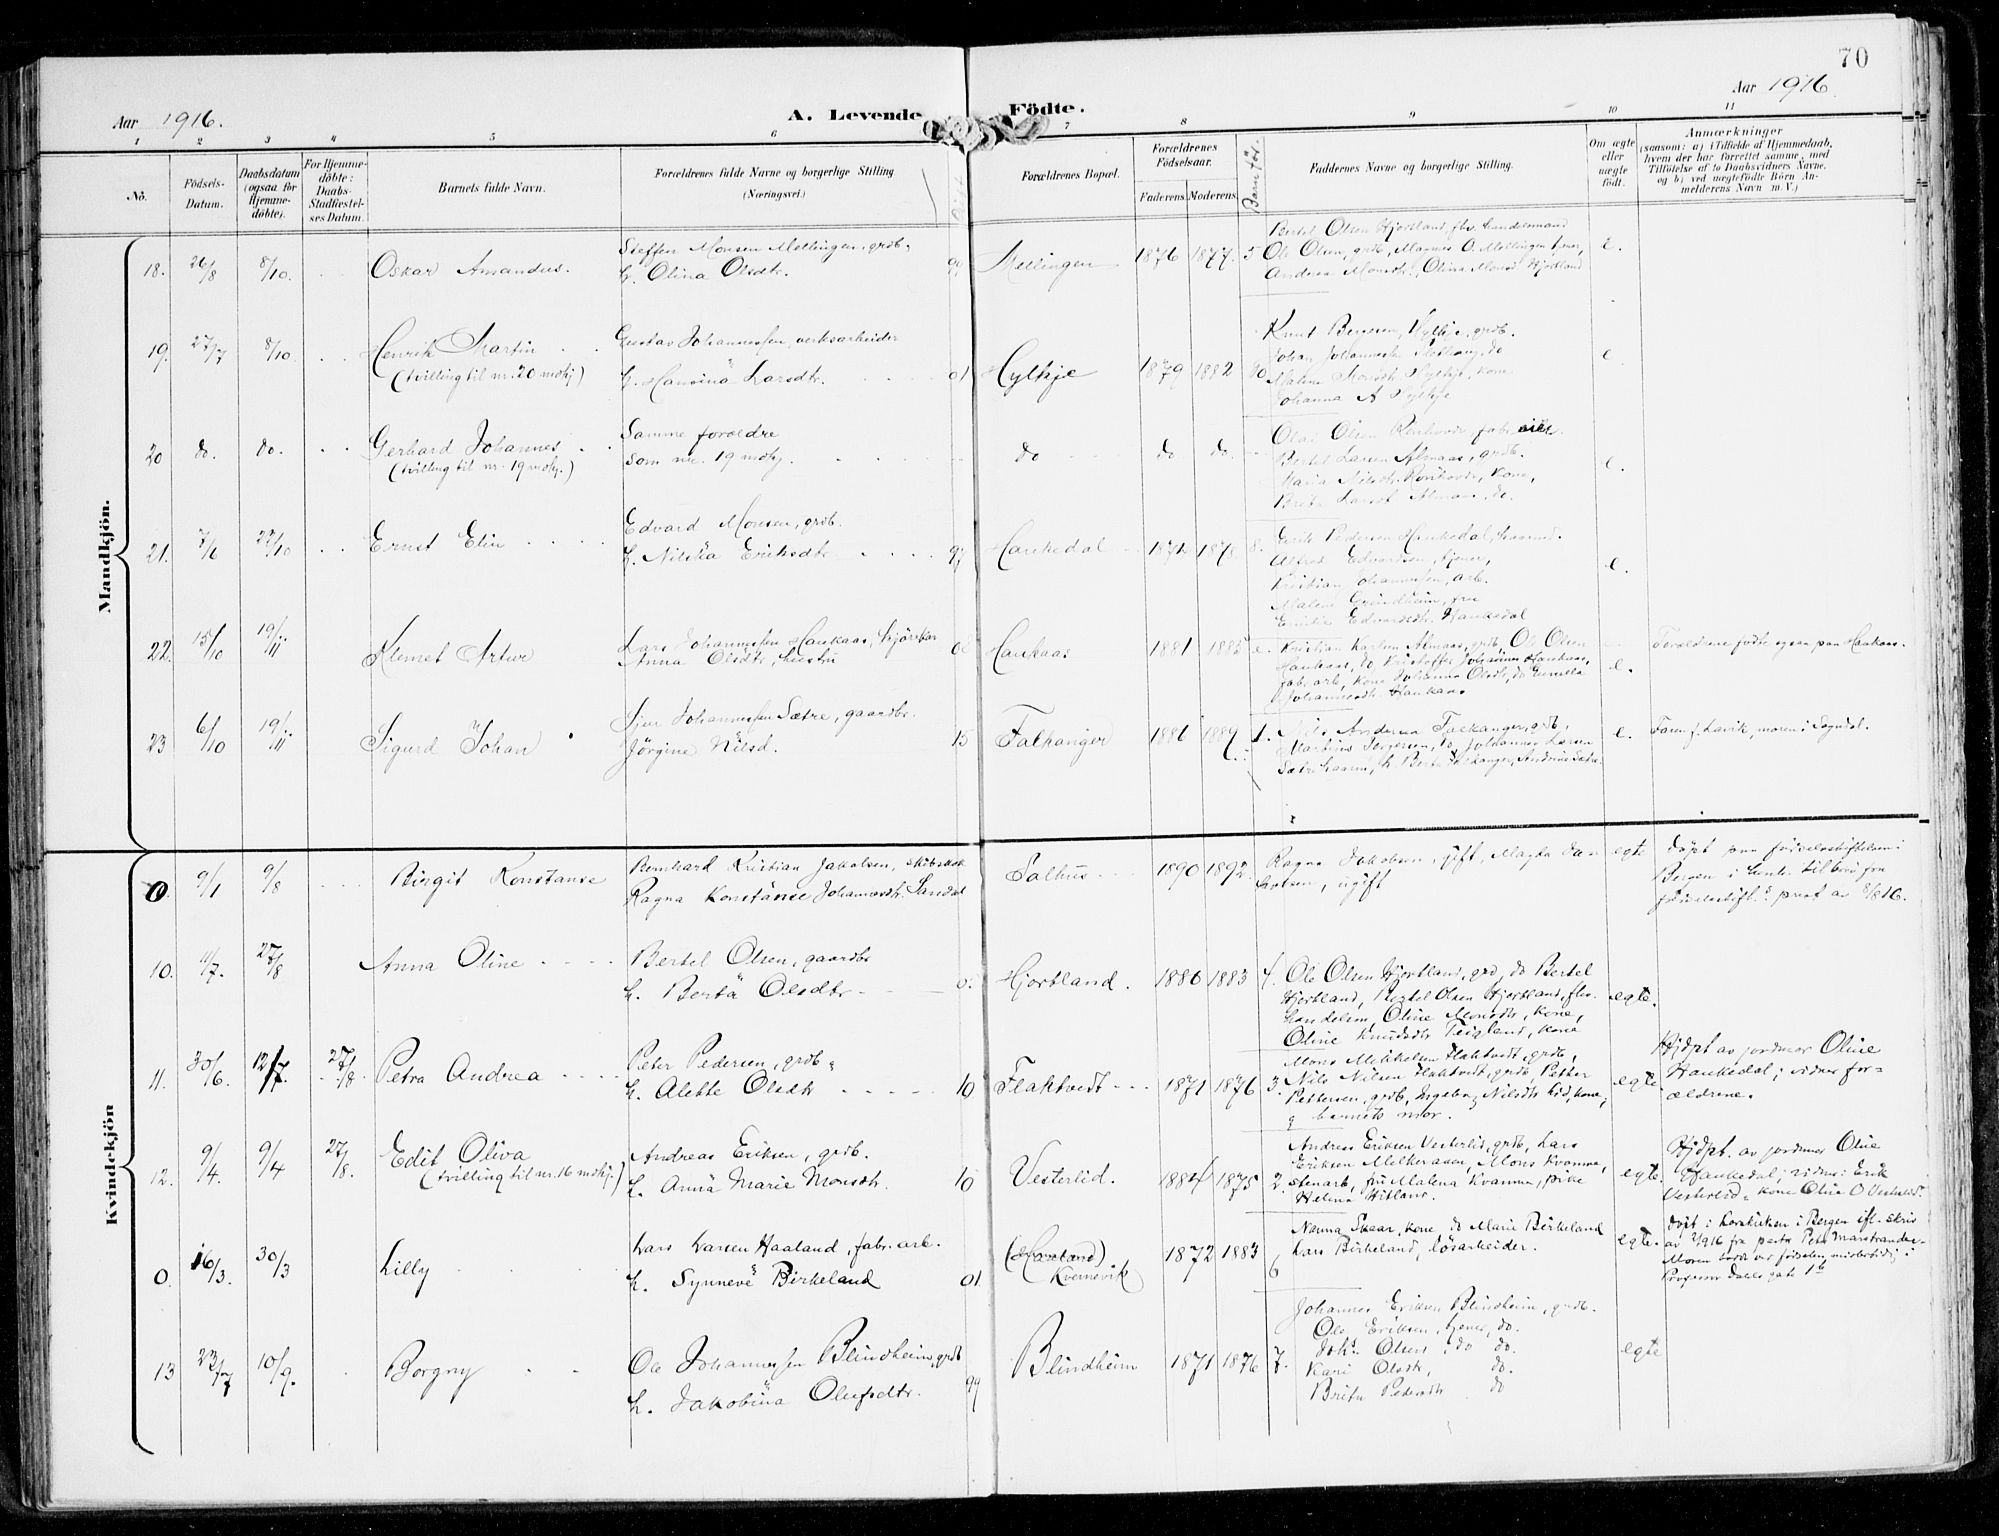 70
Aar 1916.
A. Levende Födte.
Aar 1916.
1 2 3 4 5 6 7 8 9 10 11
No.
Födsels-
Datum.
Daabsdatum
(ogsaa for
Hjemme-
döbte).
For Hjemme-
döbte:
Daabs-
Stadfæstel-
ses Datum.
Barnets fulde Navn.
Forældrenes fulde Navne og borgerlige Stilling
(Næringsvei.)
Forældrenes Bopæl.
Forældrenes
Födselsaar.
Faderens. Moderens.
Barn før.
Faddernes Navne og borgerlige Stilling.
Om ægte
eller
uægte
födt.
Anmærkninger
(saasom: a) i Tilfælde af Hjemmedaab,
hvem der har forrettet samme, med
Tilföielse af to Daabsvidners Navne,
og b) ved uægtefödte Börn An-
melderens Navn m. V.)
Mandkjön.
18. 26/8 8/10. Oskar Amandus.
Steffen Monsen Mellingen, grdb.
h. Olina Olsdtr. 99
Mellingen 1876 1877. 5
Bertel Olsen Hjortland, fhv. handelsmand
Ole Olsen, grdb, Magnus O. Mellingen tjener,
Andrea Monsdtr., Olina Monsd Hjortland
e.
19. 27/7 8/10. Henrik Martin
(tvilling til nr. 20 mdkj)
Gustav Johannessen, verksarbeider
h. Hansina Larsdtr. 01
Hylkje 1879 1882 10
Knut Bergesen, Hylkje, grdb.
Johan Johannessen
Malene Monsdtr Hylkje, kone
Johanna A Hylkje
e.
20 do. do. Gerhard Johannes
(tvilling til nr. 19 mdkj.)
Samme forældre
som nr. 19 mdkj.
do do do.
Olai Olsen
Bertel Larsen Almaas, grdb.
Maria Nilsdtr. kone,
Brita Larsdt Almaas, do.
e.
21. 7/6 22/10 Ernst Elin
Edvard Monsen, grdb.
h. Nilska Eriksdtr 97
Haukedal 1872 1878 8.
Erik Pedersen Haukedal,
Alfred Edvardsen, tjener,
Kristian Johannessen, arb.
Malene Grindheim, fru
Emilie Edvardsdtr Haukedal
e.
22. 15/10 19/11 Klemet Artur
Lars Johannessen Haukaas, kjørekar
Anna Olsdtr, hustru 08
Haukaas 1881 1885
Kristian Karlsen Almaas, grdb, Ole Olsen
Haukaas, do, Kristoffer Johannes Haukaas,
fabr. arb, kone Johanna Olsdtr, do Gunilla
Johannesdtr Haukaas
e.
Forældrene fødte ogsaa paa Haukaas.
23 6/10 19/11 Sigurd Johan
Sjur Johannessen Sætre, gaardbr.
Jörgine Nilsd. 15
Falkanger 1886 1889 1.
Nils Andersen Falkanger, grdb,
Martinus Torgersen, do, Johannes Larsen
Sætre
e.
Faren f. Lavik, moren i Sogndal.
Kvindekjön
0. 9/1 9/8 Birgit Konstanse
Bernhard Kristian Jakobsen, skibskok
Ragna Konstanse Johannesdtr. Sandal
Salhus 1890 1892.
Ragna Jakobsen, gift, Magda Ja-
kobsen, ugift
egte
Døpt paa fødselsstiftelsen i
Bergen i
fødselsstift. prest av 8/8 16.
10. 11/7. 27/8 Anna Oline
Bertel Olsen, gaardbr
h. Berta Olsdtr
Hjortland. 1880 1883 4.
Ole Olsen Hjortland, grd, do Bertel
Hjortland, Bertel Olsen Hjortland, fhv.
handelsm, Oline Monsdtr, kone,
Oline Knudsdtr Teigland, kone
egte.
11. 30/6. 12/7. 27/8 Petra Andrea
Peter Pedersen, grdb.
h. Alette Olsdtr 10
Flaktvedt 1871 1876 3.
Mons Mikkelsen Flaktvedt, grdb,
Nils Nilsen Flaktvedt, grdb, Petter
Pettersen, grdb, Ingeborg Nilsdtr Lid, kone,
g barnets mor.
egte.
Hjdpt av jordmor Oline
Haukedal; vidner for-
ældrene.
12. 9/4. 9/4 27/8. Edit Oliva
(tvilling til nr. 16 mdkj.)
Andreas Eriksen, grdb.
h. Anna Marie Monsdtr. 10
Vesterlid. 1884 1875 2.
Andreas Eriksen Vesterlid, grdb, Lars
Eriksen Melkeraaen, Mons Kvamme,
stenarb, fru Malena Kvamme, pike
Helena Hitland.
egte.
Hjdpt. av jordmor Oline
Haukedal; vidner: Erik
Vesterlid & kone Oline O Vesterlid.
0. 16/3. 30/3 Lilly
Lars Larsen Haaland, fabr. arb.
h. Synneve Birkeland 01
(Haaland)
Kvernevik 1872 1883 6
Nanna Skaar, kone, do Marie Birkeland
Lars Birkeland, løsarbeider.
egte.
Døpt i korskirken i Bergen ifl. skriv
av 2/9 16 fra pastor Peter Marstrander.
Moren bodde ved fødselen midlertidig i
Professor Dahls gate
13 23/7 10/9. Borgny
Ole Johannessen Blindheim, grdb
h. Jakobina Olufsdtr. 99
Blindheim 1871 1876 7.
Johannes Eriksen Blindheim, grdb.
Ole Eriksen, tjener, do.
Johs. Olsen, do do.
Kari Olsdtr, do.
Brita Pedersdtr do
egte